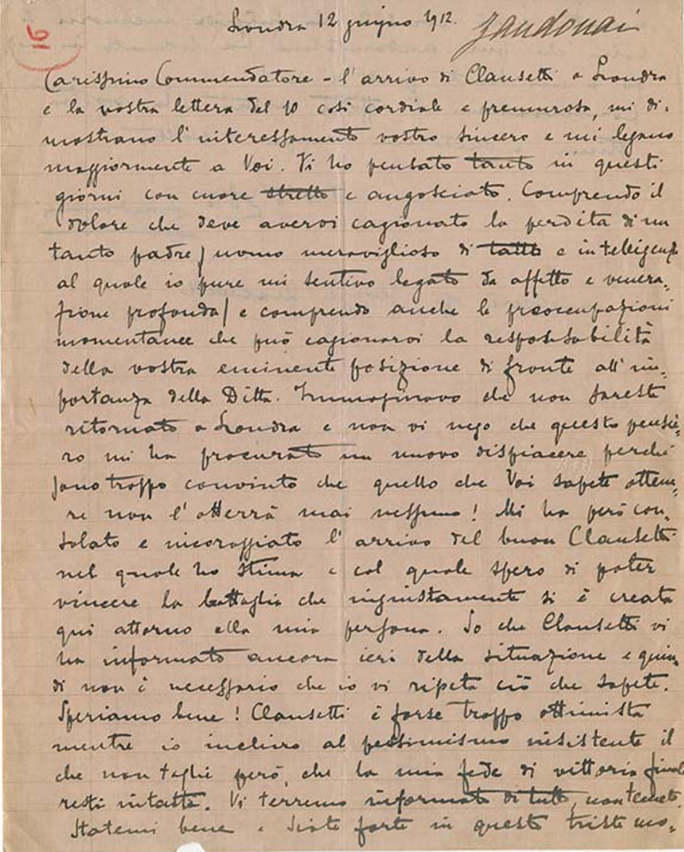 16
Londra 12 giugno 1912.
Zandonai
Carissimo Commendatore - l'arrivo di Clausetti a Londra
e la vostra lettera del 10 così cordiale e premurosa, mi di-
mostrano l'interessamento vostro sincero e mi legano
maggiormente a Voi. Vi ho pensato tanto in questi
giorni con cuore stretto e angosciato. Comprendo il
dolore che deve avervi cagionato la perdita di un
tanto padre / uomo meraviglioso di tatto e intelligenza
al quale io pure mi sentivo legato da affetto e venera-
zione profonda / e comprendo anche le preoccupazioni
momentanee che può cagionarvi la responsabilità
della vostra eminente posizione di fronte all'im-
portanza della Ditta. Immaginavo che non sareste
ritornato a Londra e non vi nego che questo pensie-
ro mi ha procurato un nuovo dispiacere perché
sono troppo convinto che quello che Voi sapete ottene-
re non l'otterrà mai nessuno! Mi ha però con-
solato e incoraggiato l'arrivo del buon Clausetti
nel quale ho stima e col quale spero di poter
vincere la battaglia che ingiustamente si è creata
qui attorno alla mia persona. So che Clausetti vi
ha informato ancora ieri della situazione e quin-
di non è necessario che io vi ripeta ciò che sapete.
Speriamo bene! Clausetti è forse troppo ottimista
mentre io inclino al pessimismo insistente il
che non toglie però, che la mia fede di vittoria finale
resti intatta. Vi terremo informato di tutto, non temete.
Statemi bene e siate forte in questo triste mo-